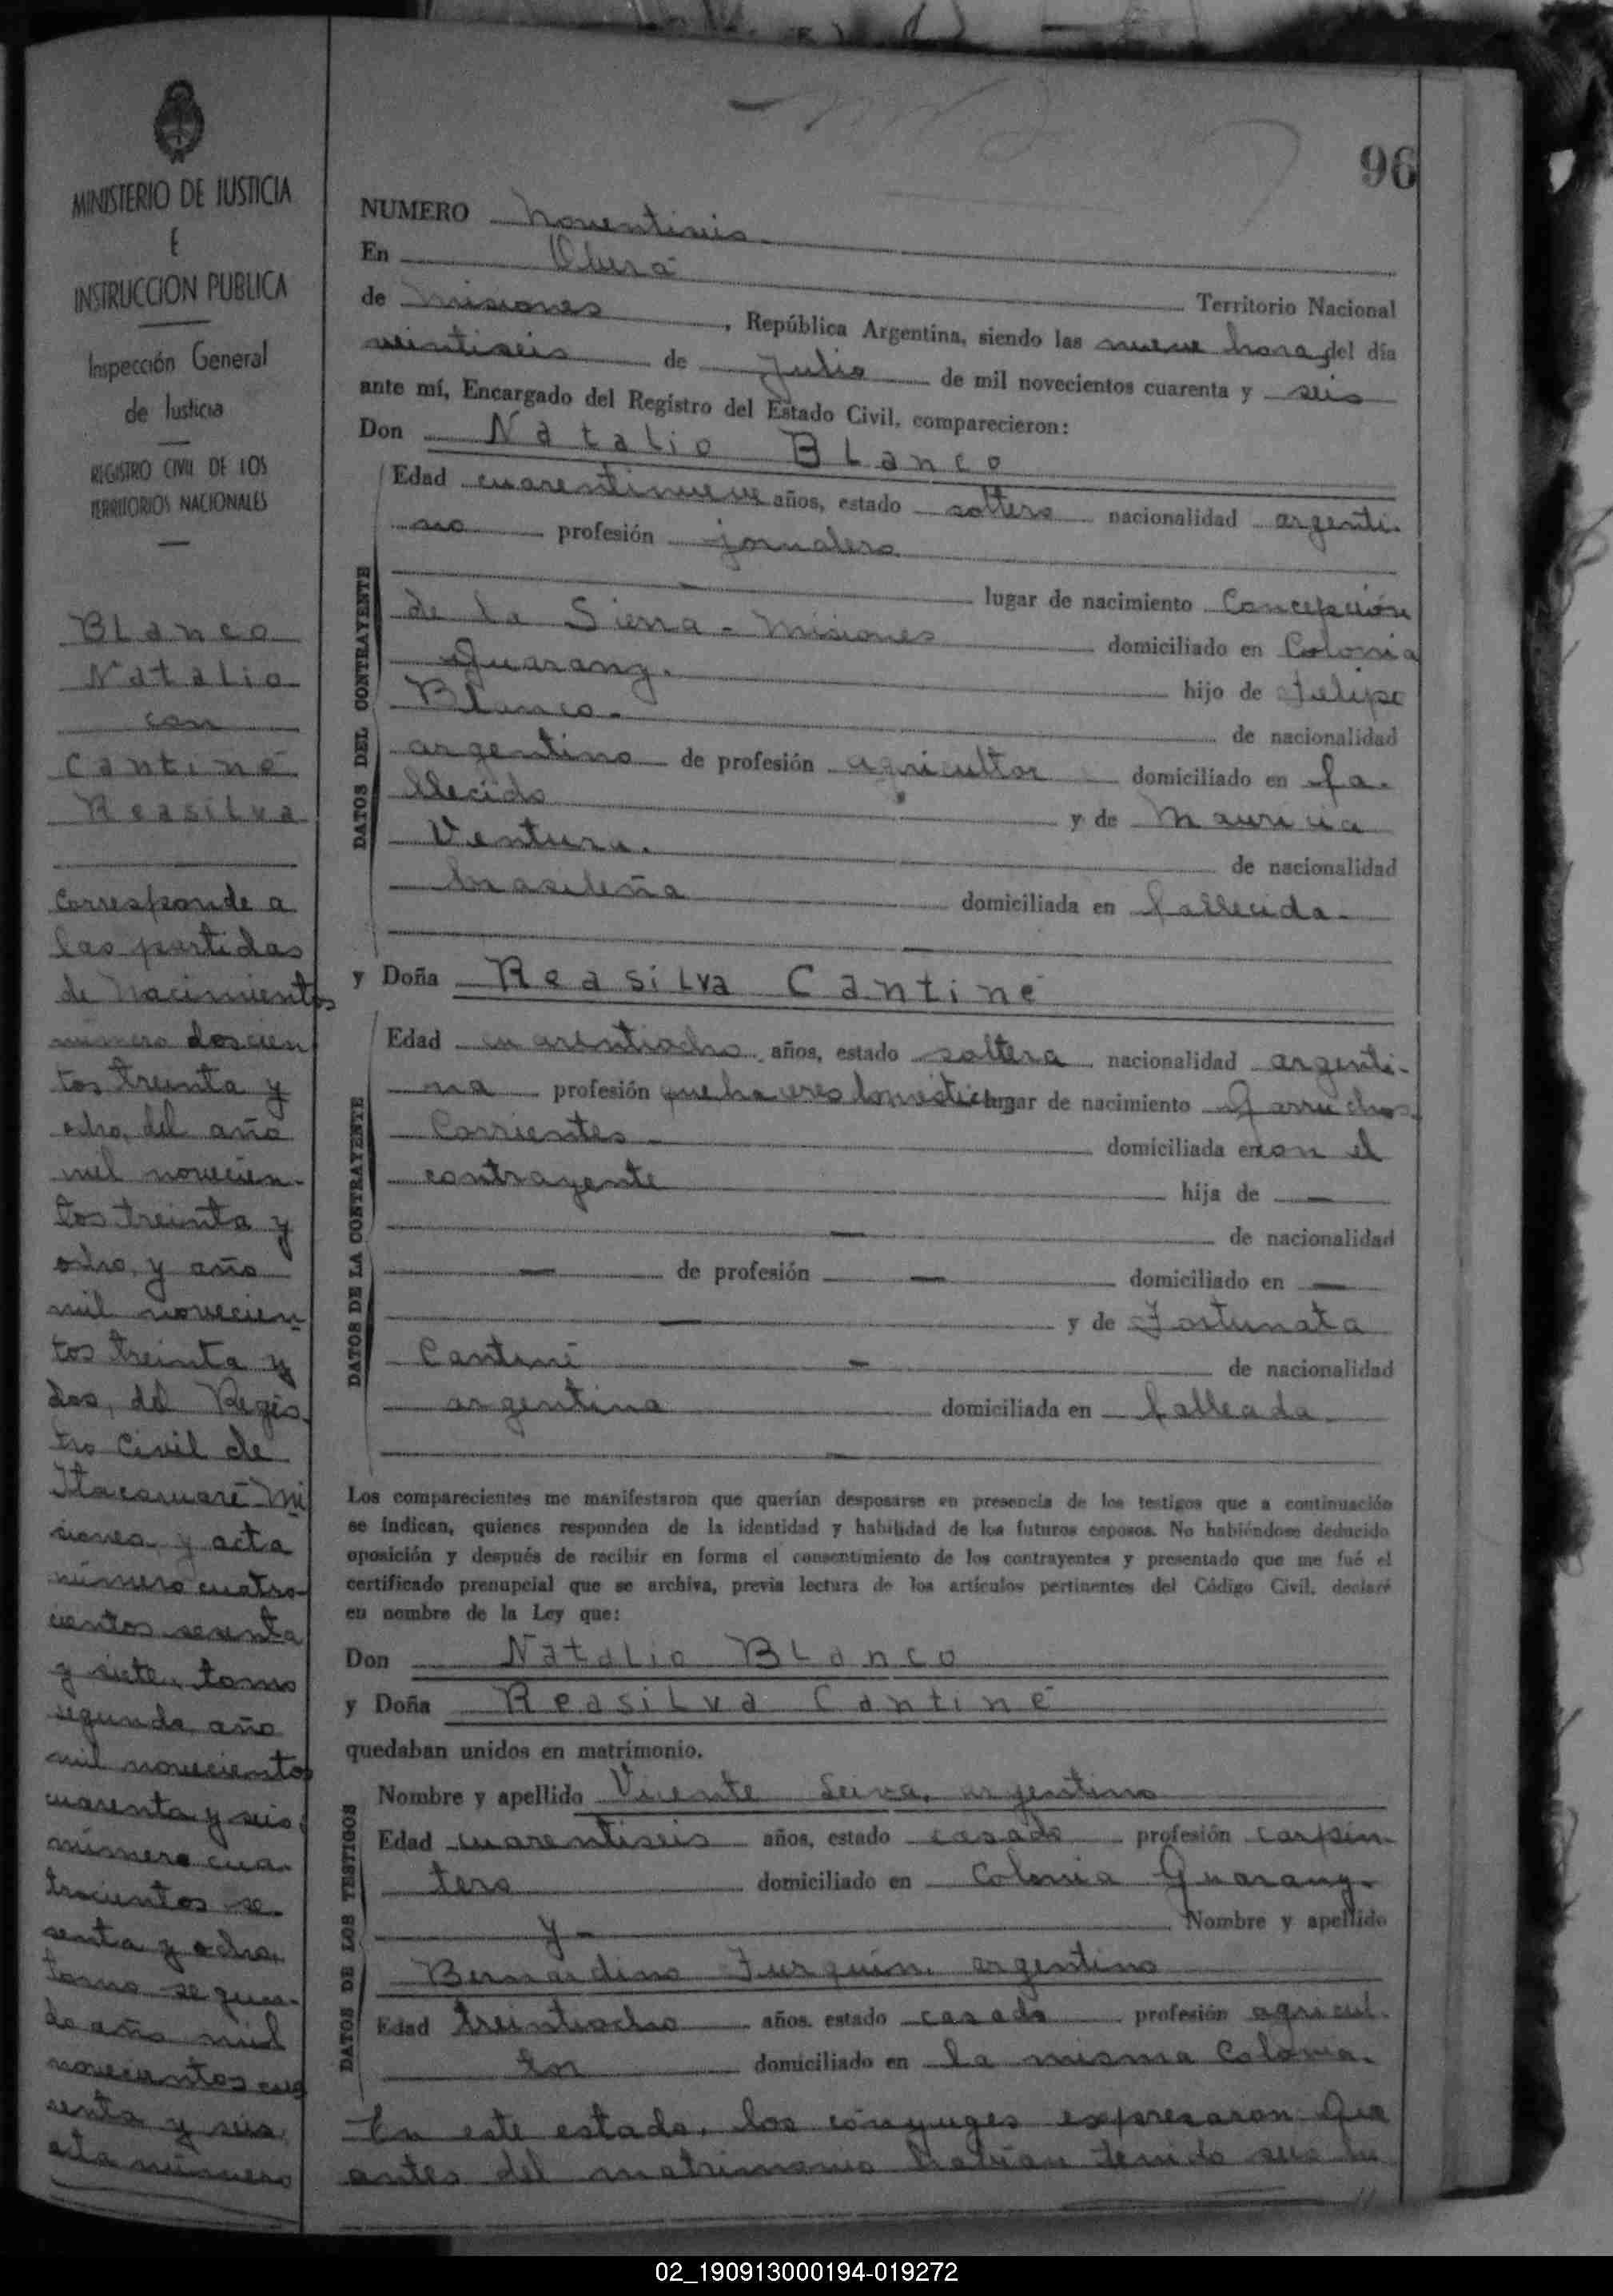 96
MINISTERIO DE JUSTICIA
E
INSTRUCCION PUBLICA
Inspección General
de Justicia
REGISTRO CIVIL DE LOS
TERRITORIOS NACIONALES
Blanco
Natalio
con
Cantiné
Reasilva
Corresponde a
las partidas
de Nacimientos
número doscien
tos treinta y
ocho, del año
mil novecien-
tos treinta y
ocho, y año
mil novecien
tos treinta y
dos, del Regis-
tro Civil de
Itacaruaré Mi
siones, y acta
número cuatro-
cientos sesenta
y siete, tomo
segundo, año
mil novecientos
cuarenta y seis
número cua-
trocientos se-
senta y ocho,
tomo segun-
do año mil
novecientos cua
renta y seis,
acta número
NUMERO noventiseis
En Oberá
Territorio Nacional
de Misiones, República Argentina, siendo las nueve horas del día
veintiseis de Julio de mil novecientos cuarenta y seis
ante mí, Encargado del Registro del Estado Civil, comparecieron:
Don Natalio Blanco
DATOS DEL CONTRAYENTE
Edad cuarentinueve años, estado soltero nacionalidad argenti-
no profesión jornalero
lugar de nacimiento Concepción
de la Sierra - Misiones domiciliado en Colonia
Guarany. hijo de Felipe
Blanco - de nacionalidad
argentino de profesión agricultor domiciliado en fa-
llecido y de Mauricia
Ventura. de nacionalidad
brasileña domiciliada en fallecida -
y Doña Reasilva Cantiné
DATOS DE LA CONTRAYENTE
Edad cuarentiocho años, estado soltera nacionalidad argenti-
na profesión quehaceres domésticos lugar de nacimiento Garruchos
Corrientes - domiciliada en con el
contrayente hija de —
— de nacionalidad
— de profesión — domiciliado en —
— y de Fortunata
Cantiné - de nacionalidad
argentina domiciliada en fallecida
Los comparecientes me manifestaron que querían desposarse en presencia de los testigos que a continuación
se indican, quienes responden de la identidad y habilidad de los futuros esposos. No habiéndose deducido
oposición y después de recibir en forma el consentimiento de los contrayentes y presentado que me fué el
certificado prenupcial que se archiva, previa lectura de los artículos pertinentes del Código Civil, declaré
en nombre de la Ley que:
Don Natalio Blanco
y Doña Reasilva Cantiné
quedaban unidos en matrimonio.
DATOS DE LOS TESTIGOS
Nombre y apellido Vicente Leiva, argentino
Edad cuarentiseis años, estado casado profesión carpin-
tero domiciliado en Colonia Guarany.
y - Nombre y apellido
Bernardino Furquim, argentino
Edad treintiocho años, estado casado profesión agricul-
tor domiciliado en la misma Colonia.
En este estado, los cónyuges expresaron: Que
antes del matrimonio habían tenido sus hi
02_190913000194-019272